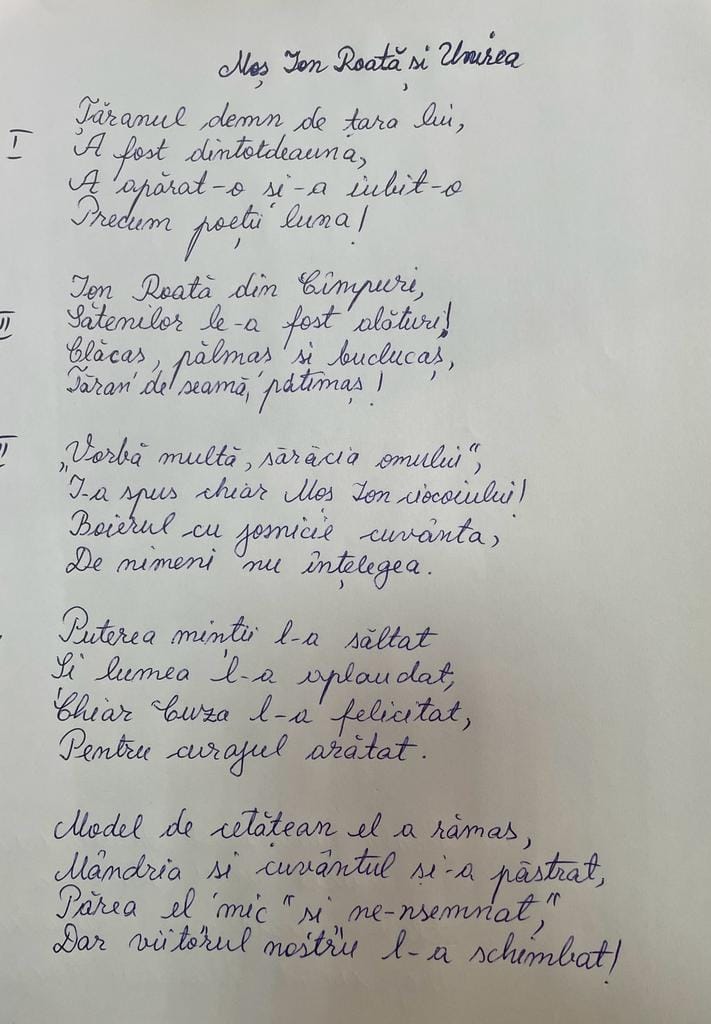 Moș Ion Roată și Unirea
I
Țăranul demn de țara lui,
A fost dintotdeauna,
A apărat-o și-a iubit-o
Precum poeții luna!
II
Ion Roată din Cîmpuri,
Sătenilor le-a fost alături!
Clăcaș, pălmaș și buclucaș,
Țăran de seamă, pătimaș!
„Vorbă multă, sărăcia omului",
I-a spus chiar Moș Ion ciocoiului!
Boierul cu josnicie cuvânta,
De nimeni nu înțelegea.
Puterea minții l-a săltat
Și lumea l-a aplaudat,
Chiar Cuza l-a felicitat,
Pentru curajul arătat.
Model de cetățean el a rămas,
Mândria și cuvântul și-a păstrat,
Părea el mic "și ne-nsemnat,"
Dar viitorul nostru l-a schimbat!